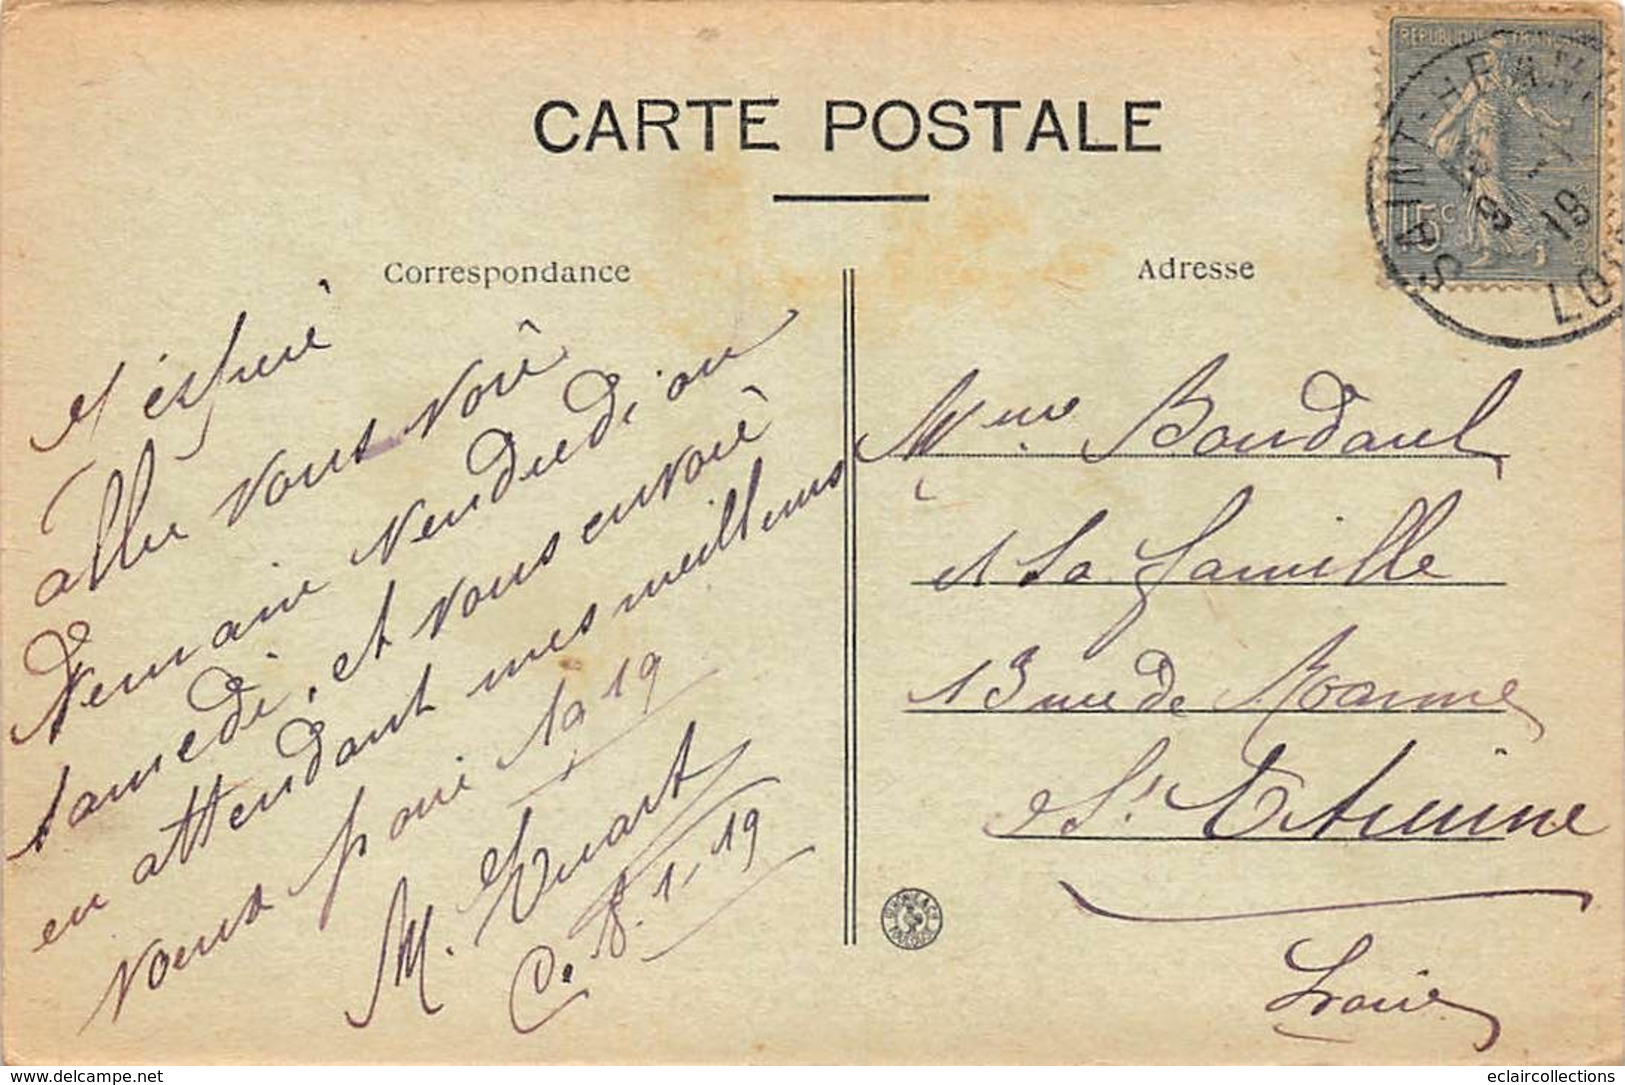 CARTE POSTALE
Correspondance
Adresse
REPUBLIQUE FRANÇAISE
15c
SAINT-
LOT
et éspere
aller vous voir
Demain Vendredi, ou
samedi, et vous envoie
en attendant mes meilleurs
voeux pour 1919
M. Evart
C. 8.1.19
Mme Boudarel
et Sa famille
13 rue de Roanne
St. Etienne
Loire
delcampe.net
eclaircollections